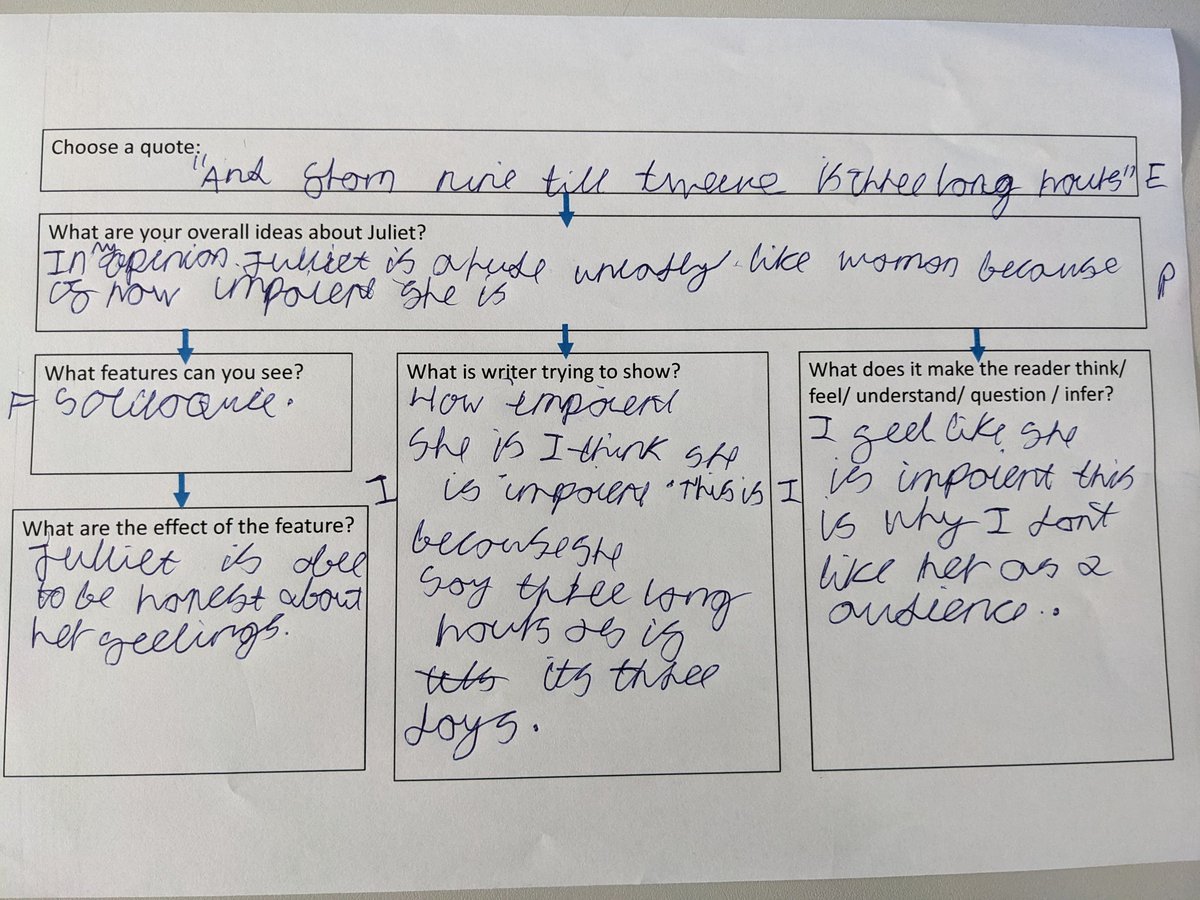 Choose a quote:
"And from nine till twelve is three long hours" E
What are your overall ideas about Juliet?
In my opinion. Julliet is a rude like woman because P
of how impoient she is
What features can you see?
F Soliloquie.
What are the effect of the feature?
Julliet is abel
to be honest about
her feelings.
What is writer trying to show?
How impoient
she is I think she
I is impoient. This is
because she
say three long
hours as is
its three
days.
What does it make the reader think/
feel/ understand/ question / infer?
I feel like she
I is impoient this
is why I don't
like her as a
audience..